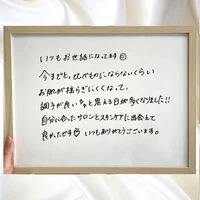 いつもお世話になってます☺
今までと、比べものにならないくらい
お肌が揺らぎにくくなって、
調子が良いなぁと思える日が多くなりました!!
自分に合ったサロンとスキンケアに出会えて
良かったです☺ いつもありがとうございます。